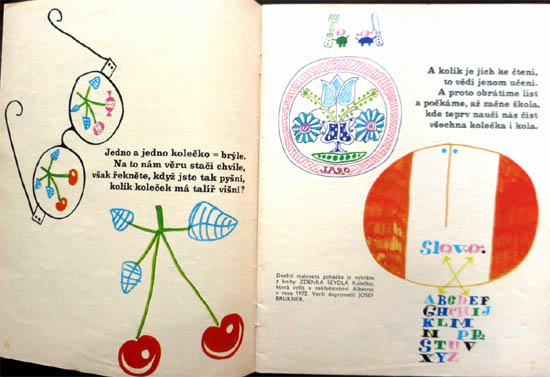 Jedno a jedno kolečko = brýle.
Na to nám věru stačí chvíle,
však řekněte, když jste tak pyšní,
kolik koleček má talíř višní?
6
JARO
A kolik je jich ke čtení,
to vědí jenom učení.
A proto obrátíme list
a počkáme, až začne škola,
kde teprv naučí nás číst
všechna kolečka i kola.
Slovo:
ABCDEF
GHCHIJ
KLM
N PR
STUV
XYZ
Dnešní malovaná pohádka je vybrána
z knihy ZDENKA SEYDLA Kolečko,
která vyšla v nakladatelství Albatros
v roce 1972. Verši doprovodil JOSEF
BRUKNER.
7